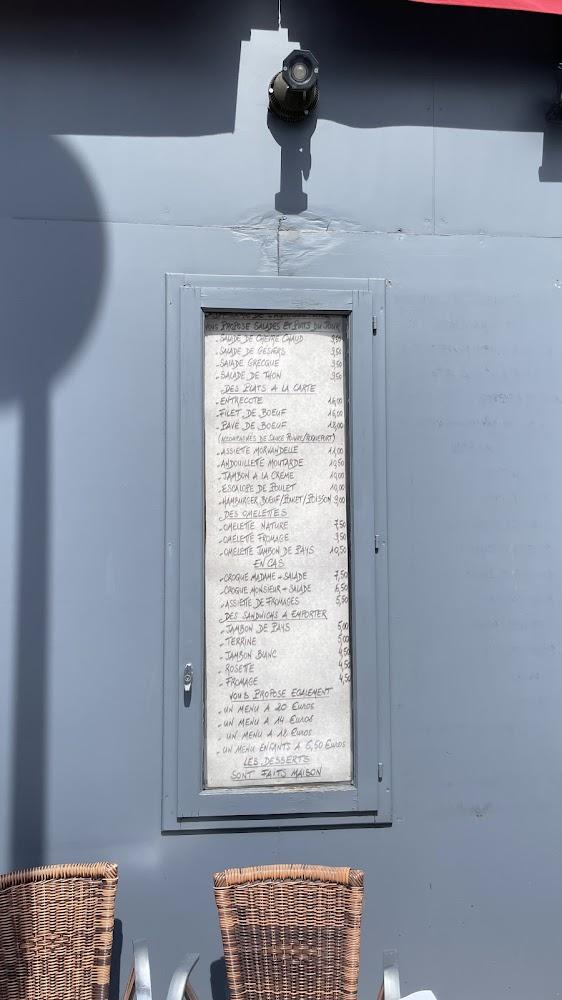 VOUS PROPOSE SALADES ET PLATS DU JOUR
- SALADE DE CHEVRE CHAUD 9,50
- SALADE DE GESIERS 9,50
- SALADE GRECQUE 9,50
- SALADE DE THON 9,50
DES PLATS A LA CARTE
- ENTRECOTE 16,00
- FILET DE BOEUF 16,00
- PAVE DE BOEUF 18,00
(ACCOMPAGNES DE SAUCE POIVRE/ROQUEFORT)
- ASSIETE MORVANDELLE 11,00
- ANDOUILLETE MOUTARDE 10,50
- JAMBON A LA CREME 10,00
- ESCALOPE DE POULET 10,00
- HAMBURGER BOEUF/POULET/POISSON 9,00
DES OMELETTES
- OMELETTE NATURE 7,50
- OMELETTE FROMAGE 9,50
- OMELETTE JAMBON DE PAYS 10,50
EN CAS
- CROQUE MADAME + SALADE 7,50
- CROQUE MONSIEUR + SALADE 6,50
- ASSIETTE DE FROMAGES 5,50
DES SANDWICHS A EMPORTER
- JAMBON DE PAYS 5,00
- TERRINE 5,00
- JAMBON BLANC 4,50
- ROSETTE 4,50
- FROMAGE 4,50
VOUS PROPOSE EGALEMENT
- UN MENU A 20 Euros
- UN MENU A 14 Euros
- UN MENU A 12 Euros
- UN MENU ENFANTS A 6,50 Euros
LES DESSERTS
SONT FAITS MAISON